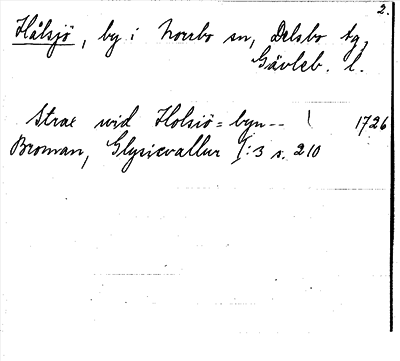 2.
Hålsjö, by i Norrbo sn, Delsbo tg,
Gävleb. l.
Strax wid Holsiö=byn-- 1726
Broman, Glysisvallur I:3 s. 210